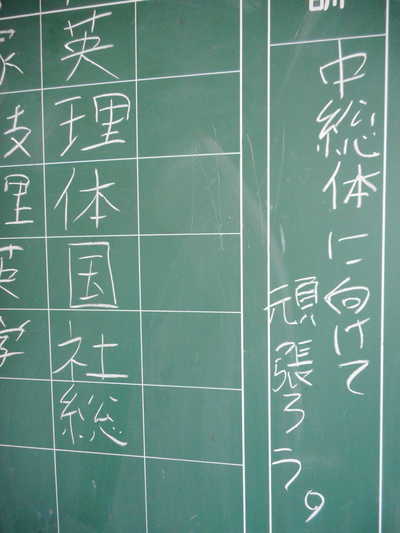 訓
中総体に向けて
頑張ろう。
英
理
体
国
社
総
技
理
英